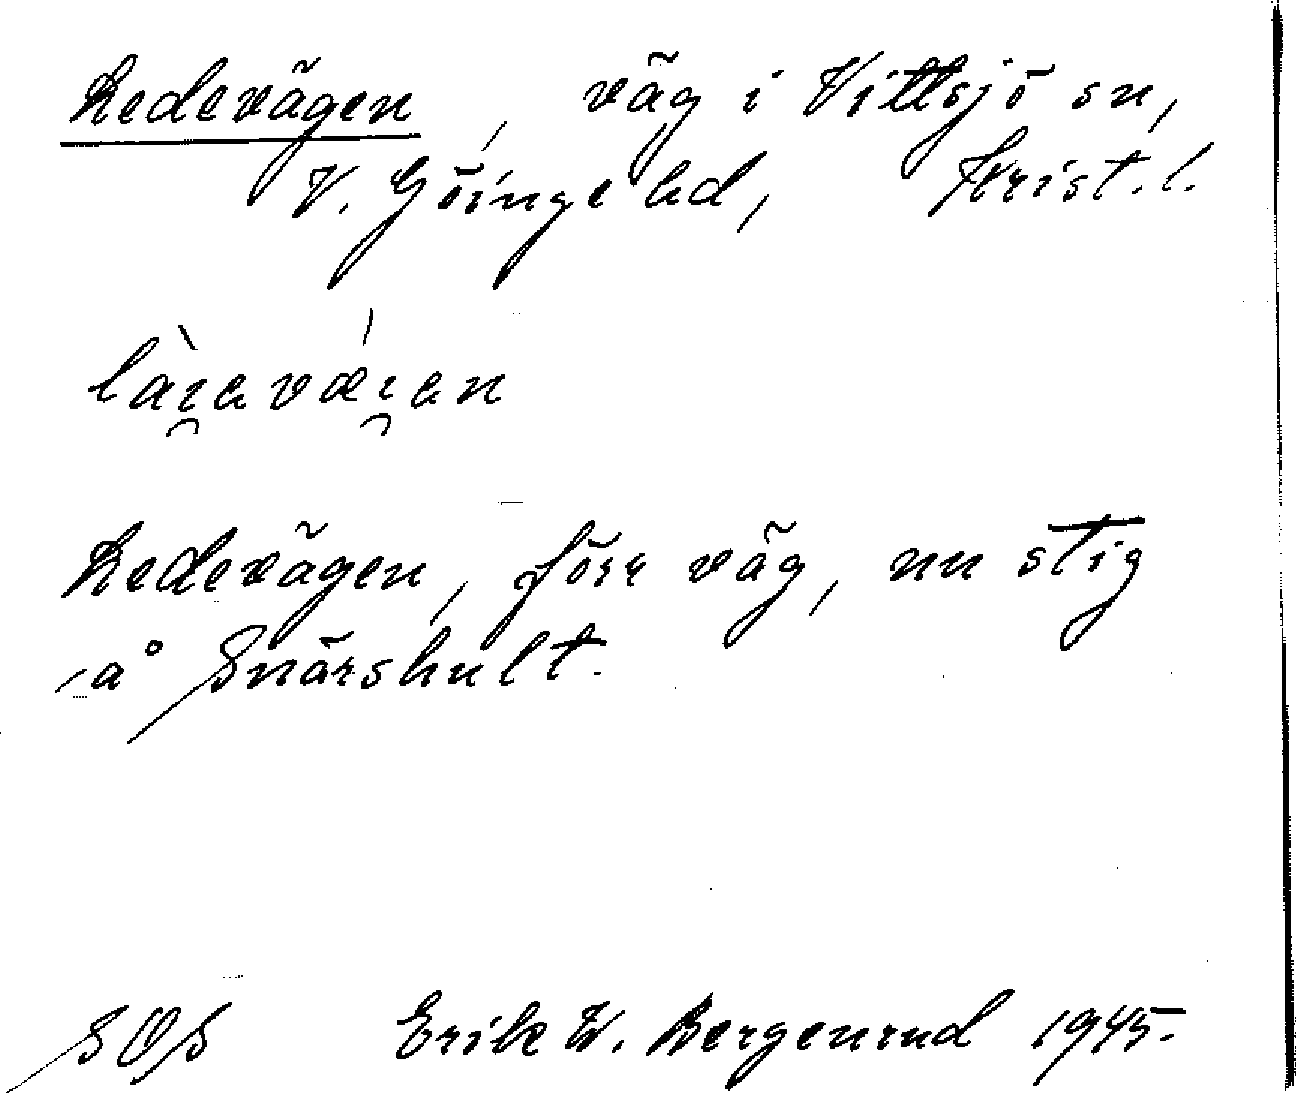 Ledevägen, väg i Vittsjö sn,
V. Göinge hd, Krist. l.
làɪ̯avǽɪ̯an
Ledevägen, förr väg, nu stig
å Snärshult.
SOS Erik W. Bergenrud 1945.